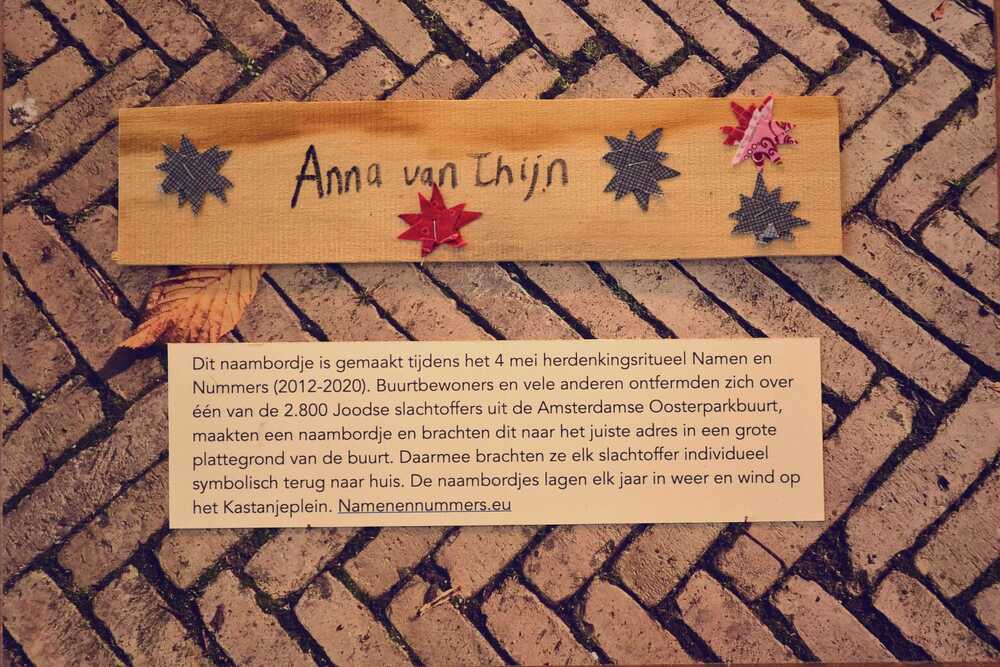 Anna van Thijn
Dit naambordje is gemaakt tijdens het 4 mei herdenkingsritueel Namen en
Nummers (2012-2020). Buurtbewoners en vele anderen ontfermden zich over
één van de 2.800 Joodse slachtoffers uit de Amsterdamse Oosterparkbuurt,
maakten een naambordje en brachten dit naar het juiste adres in een grote
plattegrond van de buurt. Daarmee brachten ze elk slachtoffer individueel
symbolisch terug naar huis. De naambordjes lagen elk jaar in weer en wind op
het Kastanjeplein. Namenennummers.eu